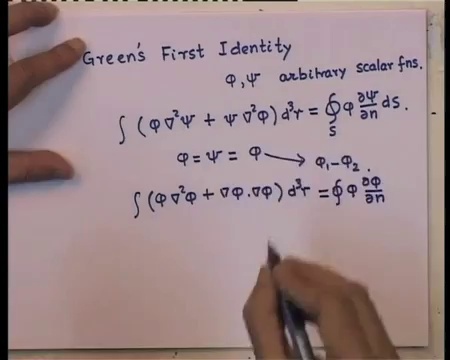 Green's First Identity
φ, ψ arbitrary scalar fns.
∫ (φ∇²ψ + ψ∇²φ) d³r = ∮_S φ ∂ψ/∂n dS.
φ = ψ = φ → φ₁-φ₂.
∫ (φ∇²φ + ∇φ.∇φ) d³r = ∮ φ ∂φ/∂n